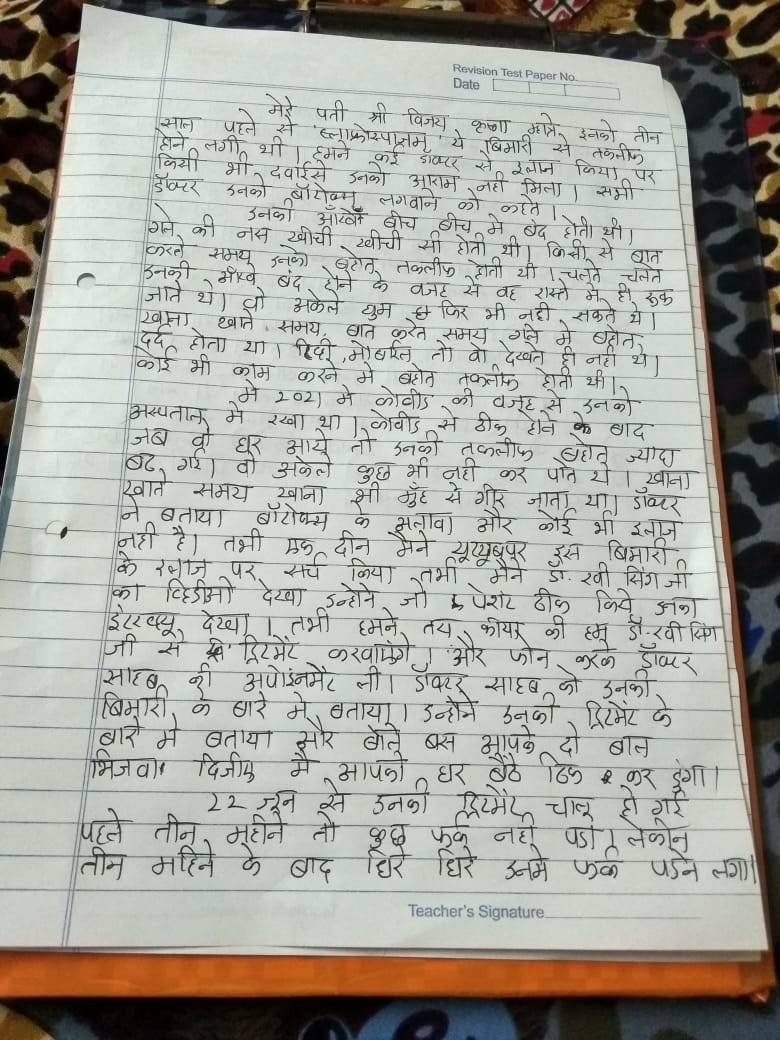 Revision Test Paper No.
Date
मेरे पती श्री विजय कृष्णा म्हात्रे इनको तीन
साल पहले से 'ब्लाफ्रोस्पाज्म' ये बिमारी से तकलीफ
होने लगी थी। हमने कई डॉक्टर से इलाज किया पर
किसी भी दवाईसे उनको आराम नही मिला। सभी
डॉक्टर उनको बॉटोक्स लगवाने को कहते।
उनकी आँखे बीच बीच मे बंद होती थी।
गले की नस खीची खीची सी होती थी। किसी से बात
करते समय उनको बहोत तकलीफ होती थी। चलते चलते
उनकी आँखे बंद होने के वजह से वह रास्ते मे ही रुक
जाते थे। वो अकेले घुम फिर भी नही सकते थे।
खाना खाते समय, बात करते समय गले मे बहोत
दर्द होता था। टिव्ही, मोबाईल तो वो देखते ही नही थे।
कोई भी काम करने मे बहोत तकलीफ होती थी।
मे 2021 मे कोवीड की वजह से उनको
अस्पताल मे रखा था। कोवीड से ठीक होने के बाद
जब वो घर आये तो उनकी तकलीफ बहोत ज्यादा
बढ गई। वो अकेले कुछ भी नही कर पाते थे। खाना
खाते समय खाना भी मुँह से गीर जाता था। डॉक्टर
ने बताया बॉटोक्स के अलावा और कोई भी इलाज
नही है। तभी एक दीन मैने यूट्यूबपर इस बिमारी
के इलाज पर सर्च किया तभी मैने डॉ. रवी सिंग जी
का व्हिडीओ देखा उन्होने जो पेशंट ठीक किये उनका
इंटरव्ह्यू देखा। तभी हमने तय कीया की हम डॉ. रवी सिंग
जी से ही ट्रिटमेंट करवायेंगे। और फोन करके डॉक्टर
साहब की अपोइंनमेंट ली। डॉक्टर साहब को उनकी
बिमारी के बारे मे बताया। उन्होने उनकी ट्रिटमेंट के
बारे मे बताया और बोले बस आपके दो बाल
भिजवा दिजीए मै आपको घर बैठे ठिक कर दुंगा।
22 जून से उनकी ट्रिटमेंट चालू हो गई
पहले तीन महीने तो कुछ फर्क नही पडा। लेकीन
तीन महिने के बाद धिरे धिरे उनमे फर्क पडने लगा।
Teacher's Signature